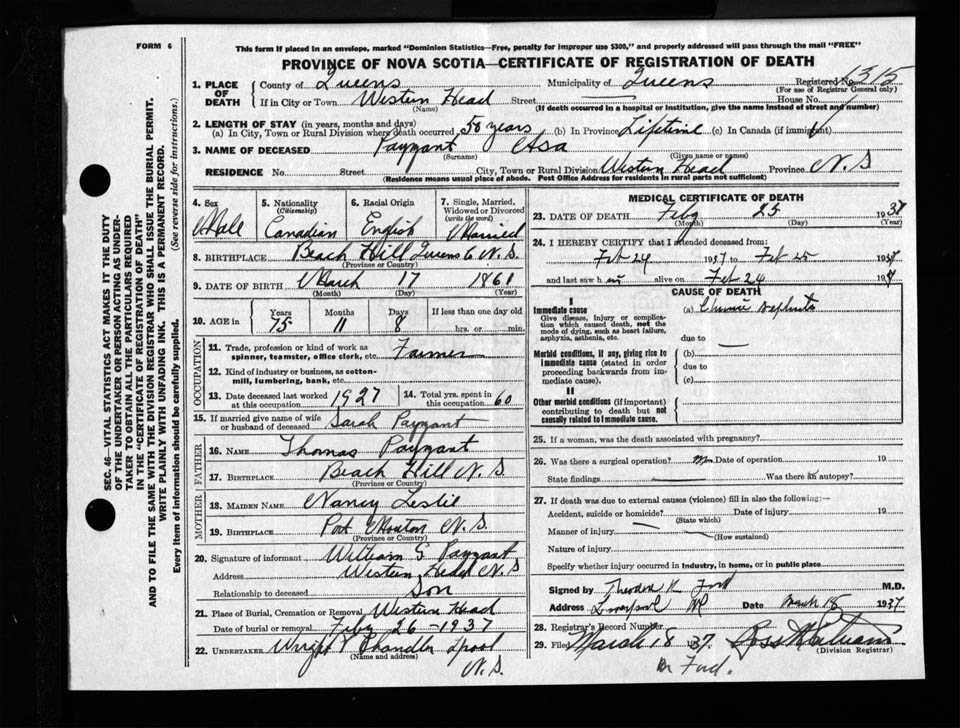 FORM 6
This form if placed in an envelope, marked "Dominion Statistics—Free, penalty for improper use $300," and properly addressed will pass through the mail "FREE"
PROVINCE OF NOVA SCOTIA—CERTIFICATE OF REGISTRATION OF DEATH
1. PLACE OF DEATH County of Queens Municipality of Queens Registered No. 1315
(For use of Registrar General only)
If in City or Town Western Head Street House No.
(Name) (If death occurred in a hospital or institution, give the name instead of street and number)
2. LENGTH OF STAY (in years, months and days)
(a) In City, Town or Rural Division where death occurred 50 years (b) In Province Lifetime (c) In Canada (if immigrant)
3. NAME OF DECEASED Payzant Asa
(Surname) (Given name or names)
RESIDENCE No. Street City, Town or Rural Division Western Head Province N.S
(Residence means usual place of abode. Post Office Address for residents in rural parts not sufficient)
4. Sex Male
5. Nationality (Citizenship) Canadian
6. Racial Origin English
7. Single, Married, Widowed or Divorced (write the word) Married
8. BIRTHPLACE Beach Hill Queens Co N.S.
(Province or Country)
9. DATE OF BIRTH March 17 1861
(Month) (Day) (Year)
10. AGE in Years 75 Months 11 Days 8 If less than one day old hrs. or min.
OCCUPATION
11. Trade, profession or kind of work as spinner, teamster, office clerk, etc. Farmer
12. Kind of industry or business, as cotton-mill, lumbering, bank, etc.
13. Date deceased last worked at this occupation 1927
14. Total yrs. spent in this occupation 60
15. If married give name of wife or husband of deceased Sarah Payzant
FATHER
16. NAME Thomas Payzant
17. BIRTHPLACE Beach Hill N.S
(Province or Country)
MOTHER
18. MAIDEN NAME Nancy Leslie
19. BIRTHPLACE Port Mouton N.S.
(Province or Country)
20. Signature of informant William G Payzant
Address Western Head N.S
Relationship to deceased Son
21. Place of Burial, Cremation or Removal Western Head
Date of burial or removal Feby 26-1937
22. UNDERTAKER Wright V Chandler Lpool
(Name and address)
N.S.
MEDICAL CERTIFICATE OF DEATH
23. DATE OF DEATH Feby 25 1937
(Month) (Day) (Year)
24. I HEREBY CERTIFY that I attended deceased from:
Feb 24 1937 to Feb 25 1937
and last saw h im alive on Feb 24 1937
CAUSE OF DEATH
I
Immediate cause
Give disease, injury or complication which caused death, not the mode of dying, such as heart failure, asphyxia, asthenia, etc.
(a) Chronic nephritis
due to
Morbid conditions, if any, giving rise to immediate cause (stated in order proceeding backwards from immediate cause).
(b)
due to
(c)
II
Other morbid conditions (if important) contributing to death but not causally related to immediate cause.
25. If a woman, was the death associated with pregnancy?
26. Was there a surgical operation? no Date of operation 19
State findings Was there an autopsy?
27. If death was due to external causes (violence) fill in also the following:—
Accident, suicide or homicide? Date of injury 19
(State which)
Manner of injury
(How sustained)
Nature of injury
Specify whether injury occurred in industry, in home, or in public place
Signed by Theodore R Ford M.D.
Address Liverpool NS Date March 18 1937
28. Registrar's Record Number
29. Filed March 18 1937
(Division Registrar)
Dr Ford.
SEC. 46—VITAL STATISTICS ACT MAKES IT THE DUTY
OF THE UNDERTAKER OR PERSON ACTING AS UNDER-
TAKER TO OBTAIN ALL THE PARTICULARS REQUIRED
IN THE "CERTIFICATE OF REGISTRATION OF DEATH"
AND TO FILE THE SAME WITH THE DIVISION REGISTRAR WHO SHALL ISSUE THE BURIAL PERMIT.
WRITE PLAINLY WITH UNFADING INK. THIS IS A PERMANENT RECORD.
Every item of information should be carefully supplied. (See reverse side for instructions.)